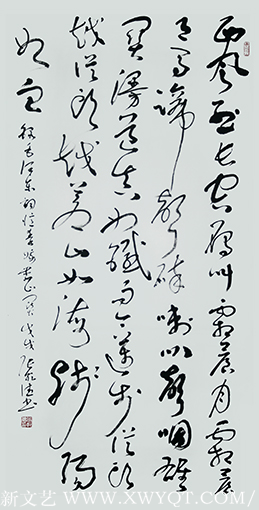 西风烈长空雁叫霜晨月霜晨
月马蹄声碎喇叭声咽雄
关漫道真如铁而今迈步从头
越从头越苍山如海残阳
如血
毛泽东词忆秦娥娄山关戊戌书
新文艺 / WWW.XWYQT.COM/